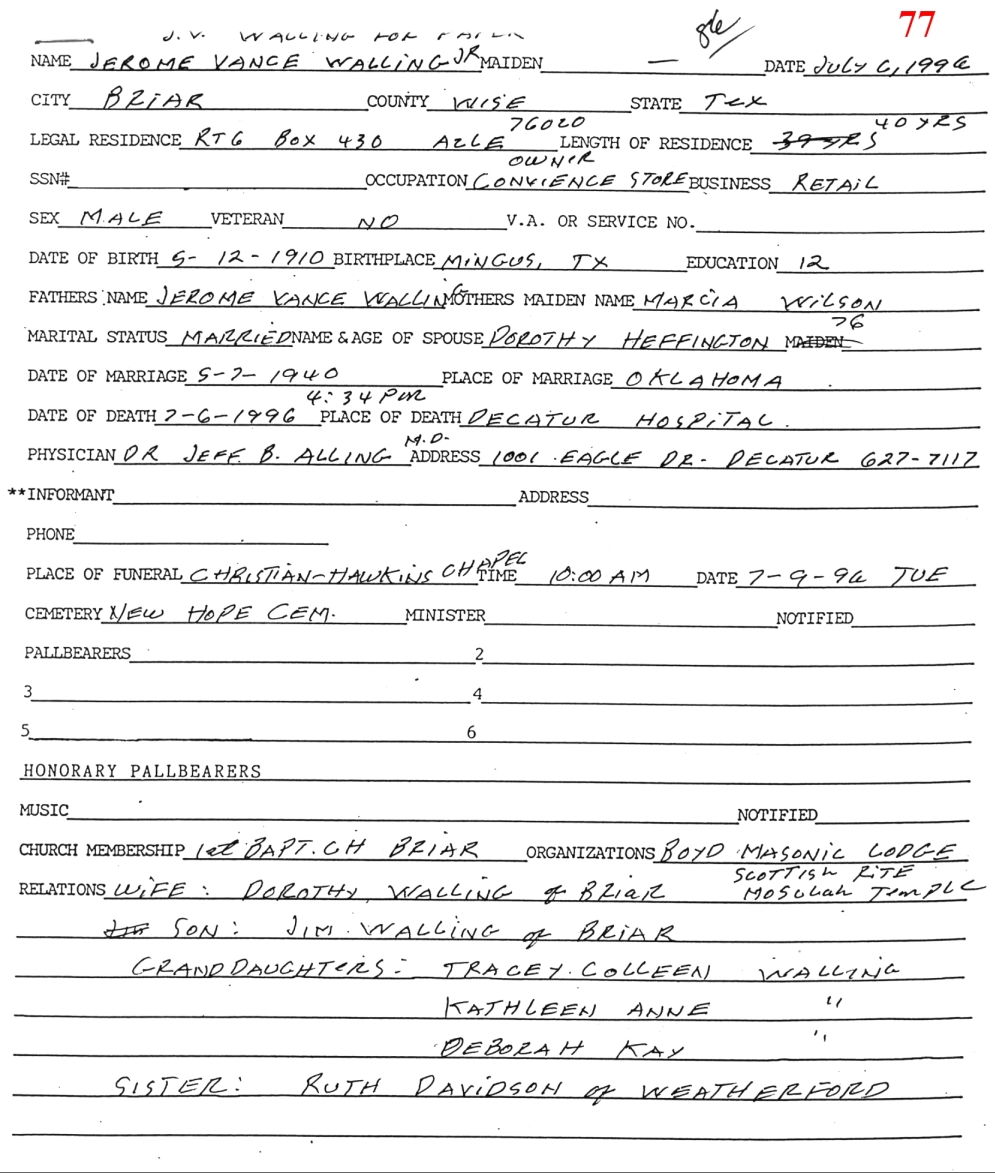 77
J.V. WALLING FOR PAPER
NAME JEROME VANCE WALLING JR MAIDEN — DATE JULY 6, 1996
CITY BRIAR COUNTY WISE STATE TEX
76020 40 YRS
LEGAL RESIDENCE RT 6 BOX 430 AZLE LENGTH OF RESIDENCE 39 YRS
OWNER
SSN# OCCUPATION CONVIENCE STORE BUSINESS RETAIL
SEX MALE VETERAN NO V.A. OR SERVICE NO.
DATE OF BIRTH 5-12-1910 BIRTHPLACE MINGUS, TX EDUCATION 12
FATHERS NAME JEROME VANCE WALLING MOTHERS MAIDEN NAME MARCIA WILSON
76
MARITAL STATUS MARRIED NAME & AGE OF SPOUSE DOROTHY HEFFINGTON MAIDEN
DATE OF MARRIAGE 5-7-1940 PLACE OF MARRIAGE OKLAHOMA
4:34 PM
DATE OF DEATH 7-6-1996 PLACE OF DEATH DECATUR HOSPITAL.
M.D.
PHYSICIAN DR JEFF B. ALLING ADDRESS 1001 EAGLE DR- DECATUR 627-7117
**INFORMANT ADDRESS
PHONE
PLACE OF FUNERAL CHRISTIAN-HAWKINS CHAPEL TIME 10:00 AM DATE 7-9-96 TUE
CEMETERY NEW HOPE CEM. MINISTER NOTIFIED
PALLBEARERS 2
3 4
5 6
HONORARY PALLBEARERS
MUSIC NOTIFIED
CHURCH MEMBERSHIP 1st BAPT. CH BRIAR ORGANIZATIONS BOYD MASONIC LODGE
SCOTTISH RITE
RELATIONS WIFE: DOROTHY WALLING of BRIAR MOSULAH TEMPLE
SON: JIM WALLING of BRIAR
GRANDDAUGHTERS: TRACEY COLLEEN WALLING
KATHLEEN ANNE "
DEBORAH KAY "
SISTER: RUTH DAVIDSON of WEATHERFORD